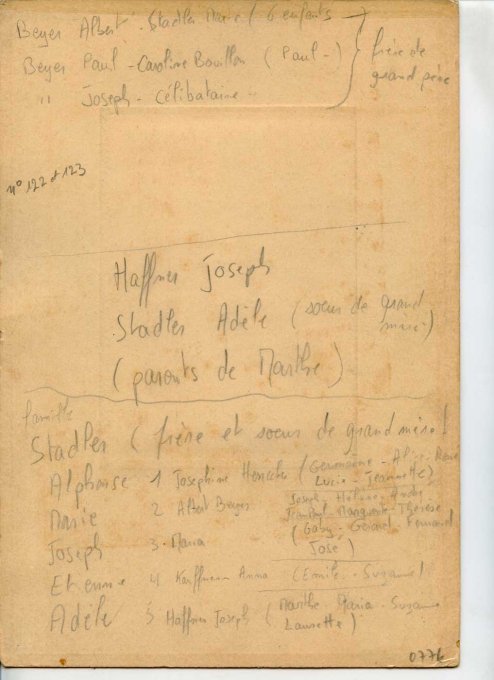 Beyer Albert - Stadler Marie / 6 enfants
Beyer Paul - Caroline Bouillon ( Paul - )
" Joseph - Célibataire -
frère de
grand père
n° 122 et 123
Haffner Joseph
Stadler Adèle ( soeur de grand
mère )
( parents de Marthe )
famille
Stadler ( frère et soeur de grand mère !
Alphonse 1 Josephine ( Germaine - Alice -
Lucie - Jeannette )
Marie 2 Albert Beyer Joseph - Hélène - André
Marguerite - Thérèse
Joseph 3 - Maria ( Gaby - Gérard - Fernand
José )
Etienne 4 Kauffmann Anna ( Emile - Suzanne )
Adèle 5 Haffner Joseph ( Marthe - Maria - Suzanne
Laurette )